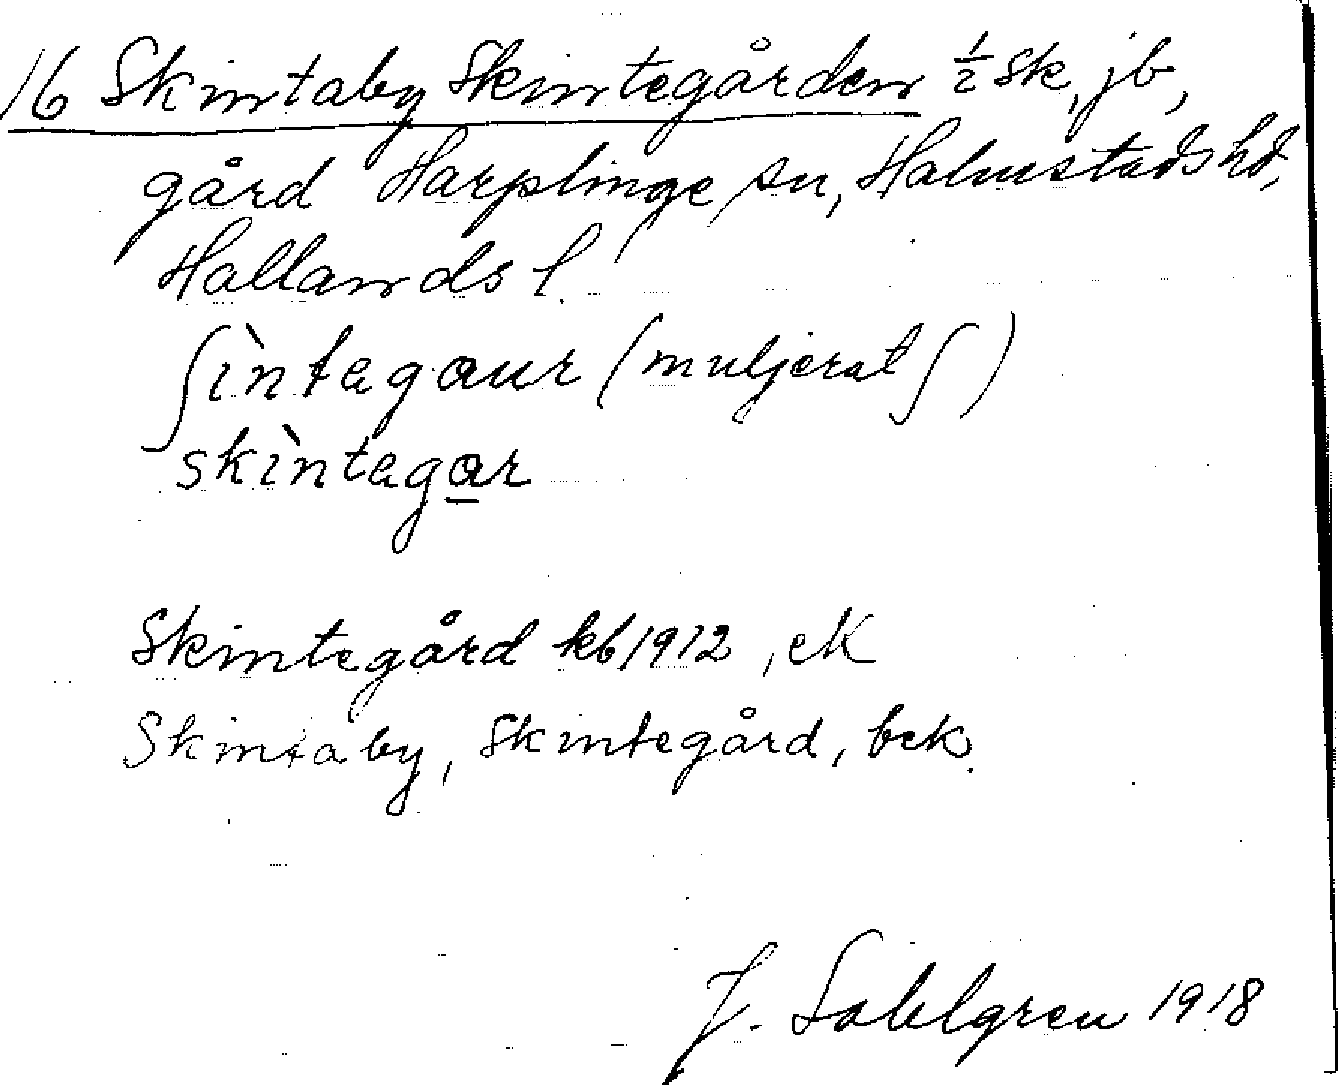 16 Skintaby Skintegården ½ sk, jb,
gård Harplinge sn, Halmstads hd,
Hallands l.
ʃìntagaur (muljerat ʃ)
skìntagar
Skintegård kb 1912, eK
Skintaby, Skintegård, bek.
J. Sahlgren 1918